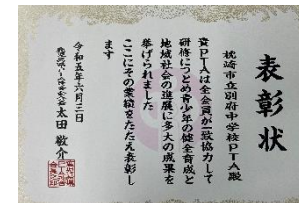 表彰状
枕崎市立別府中学校PTA殿
貴PTAは全会員が一致協力して
研修につとめ青少年の健全育成と
地域社会の進展に多大の成果を
挙げられました
ここにその業績をたたえ表彰し
ます
令和五年六月三日
太田敬介